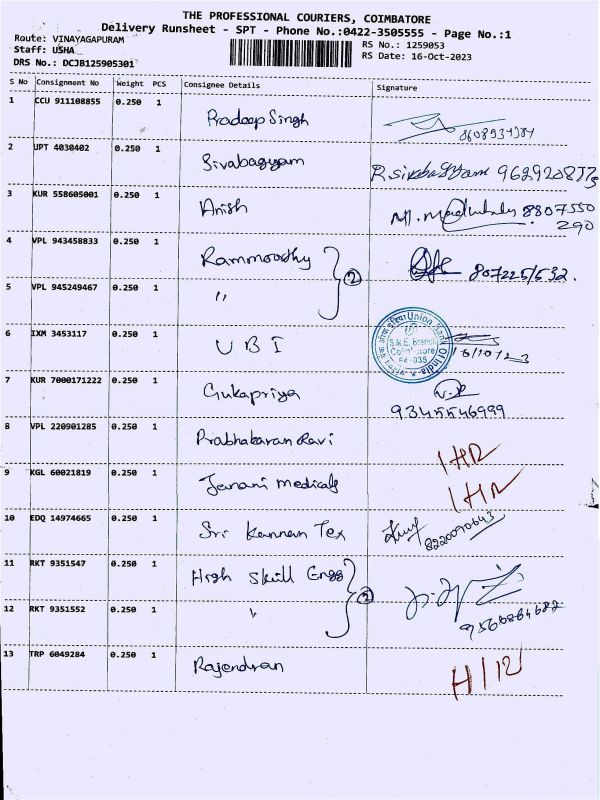 THE PROFESSIONAL COURIERS, COIMBATORE
Delivery Runsheet - SPT - Phone No.:0422-3505555 - Page No.:1
Route: VINAYAGAPURAM
Staff: USHA
DRS No.: DCJB125905301
RS No.: 1259053
RS Date: 16-Oct-2023
S No Consignment No Weight PCS Consignee Details Signature
1 CCU 911108855 0.250 1 Pradeep Singh
2 UPT 4030402 0.250 1 Sivabagyam
3 KUR 558605001 0.250 1 Anish 8807550
290
4 VPL 943458833 0.250 1 Rammoorthy
2
5 VPL 945249467 0.250 1 "
6 IXM 3453117 0.250 1 UBI Union Bank Of India
S.M.E. Branch
Coimbatore
16/10/23
7 KUR 7000171222 0.250 1 Gukapriya
9345546999
8 VPL 220901285 0.250 1 Prabhakaran Ravi IHR
9 KGL 60021819 0.250 1 Janani Medicals IHR
10 EDQ 14974665 0.250 1 Sri Kannan Tex 8220090643
11 RKT 9351547 0.250 1 High Skill Engg
2
12 RKT 9351552 0.250 1 "
13 TRP 6049284 0.250 1 Rajendran